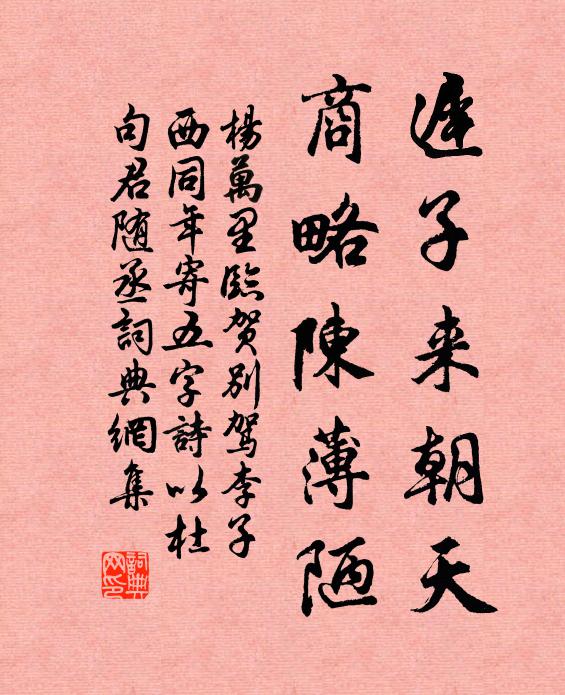 遲子来朝天
商略陳薄陋
楊萬里臨賀别駕李子
西同年寄五字詩以杜
句君随丞詞典網集
詞典
网印